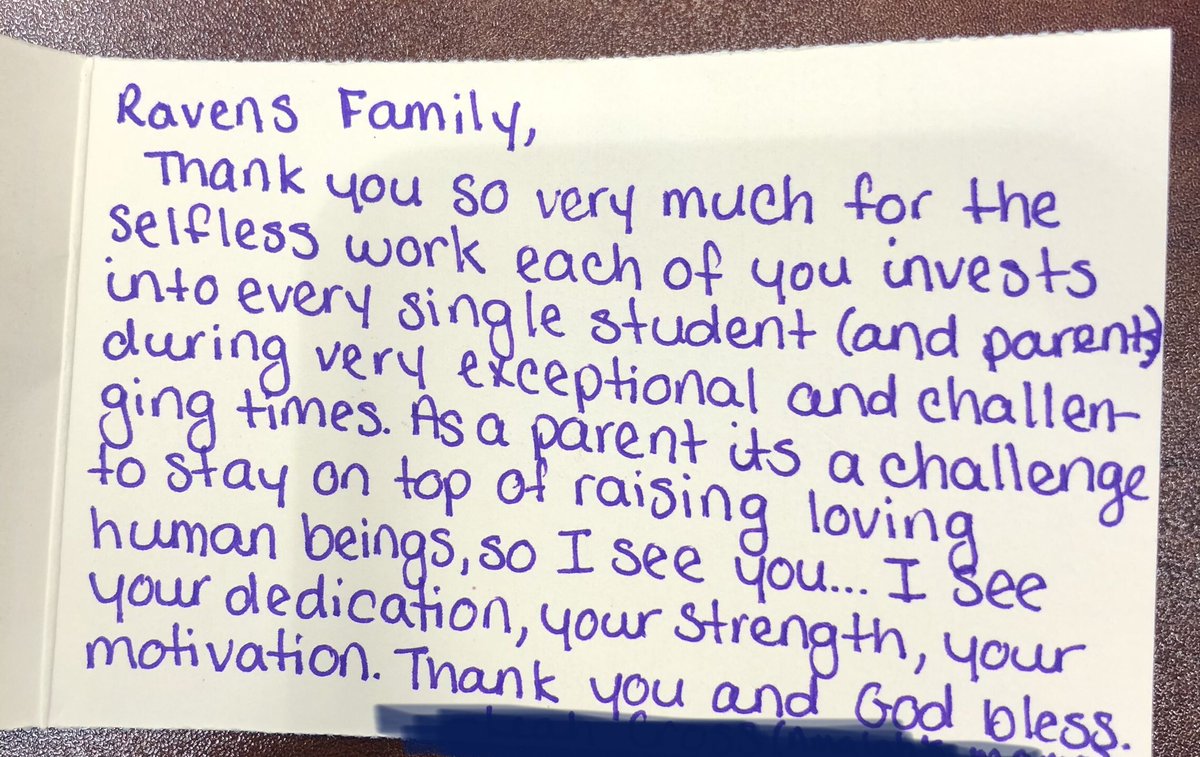 Ravens Family,
Thank you so very much for the
selfless work each of you invests
into every single student (and parents)
during very exceptional and challen-
ging times. As a parent its a challenge
to stay on top of raising loving
human beings, so I see you... I see
your dedication, your strength, your
motivation. Thank you and God bless.